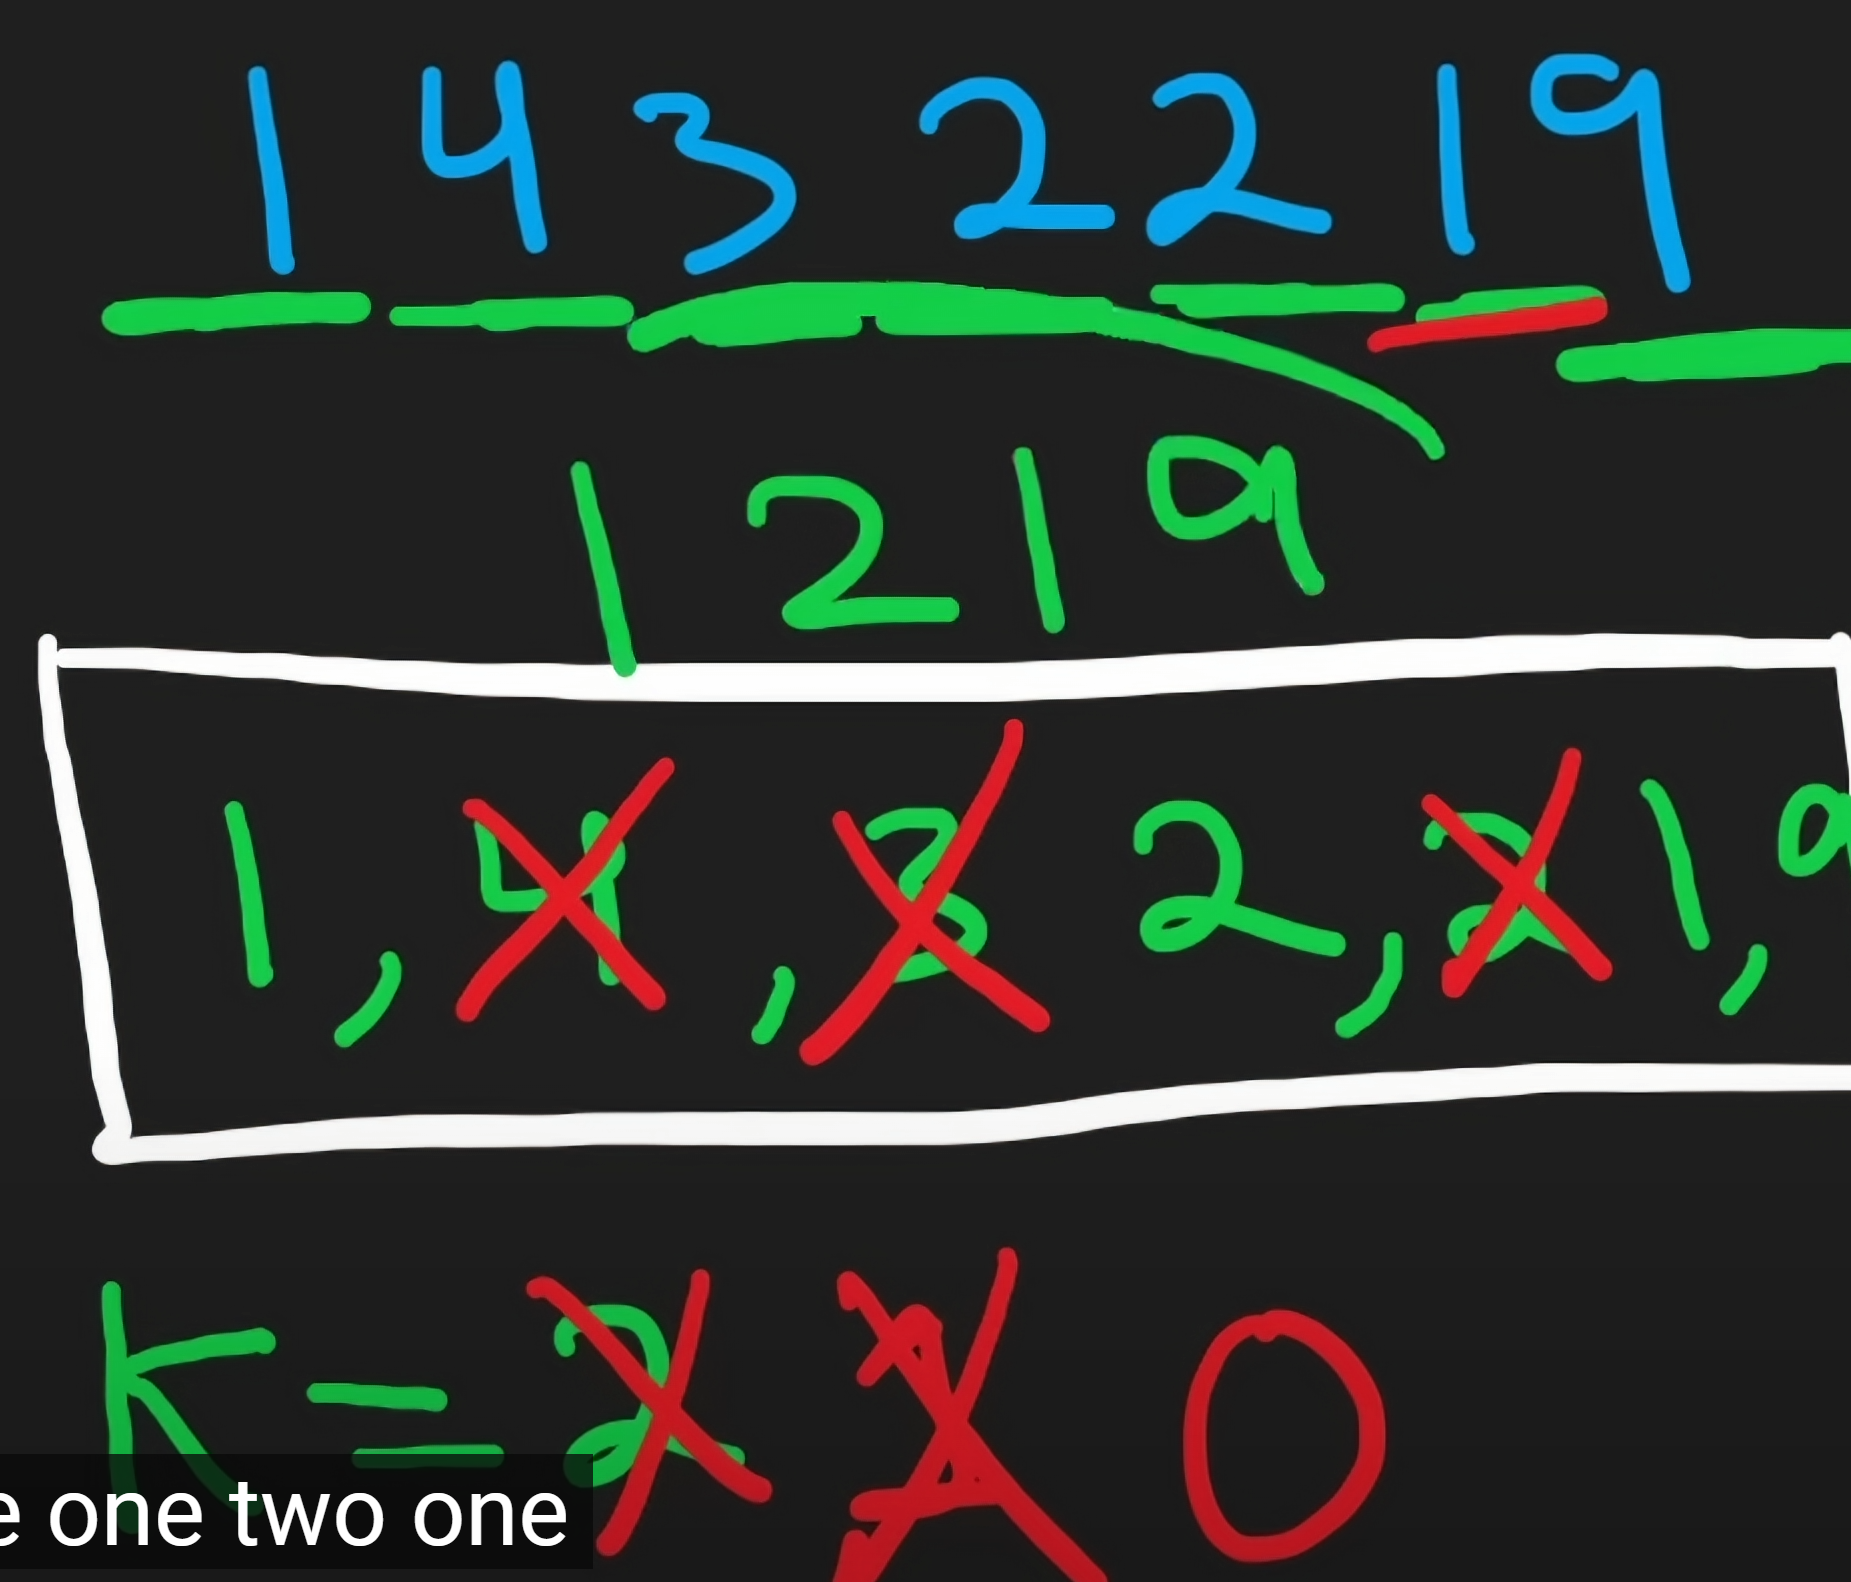 1432219
1219
1, 4, 3 2, 2 1, 9
K = 2 1 0
e one two one